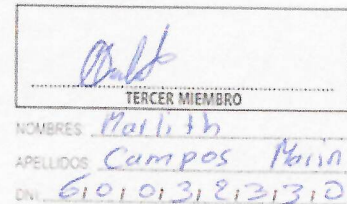 TERCER MIEMBRO
NOMBRES Marlith
APELLIDOS Campos Marin
DNI 60032330